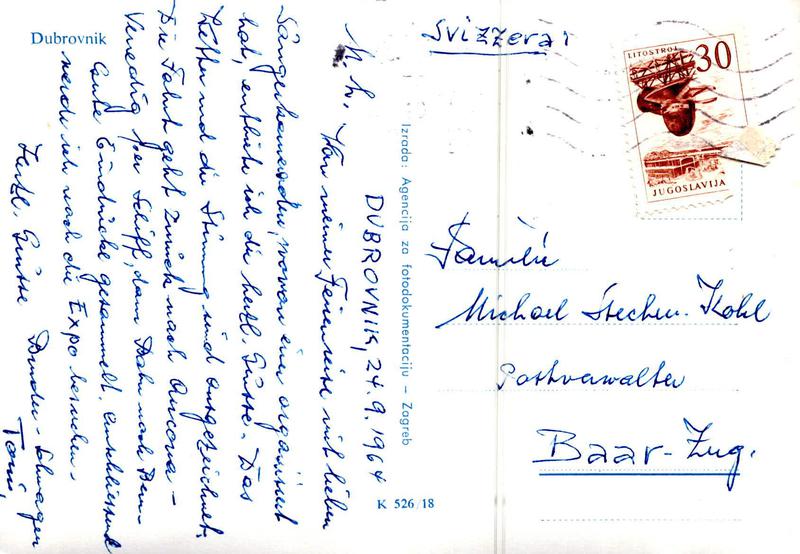 Dubrovnik
DUBROVNIK, 24.9.1964
M. L. Von meiner Ferienreise mit lieben
Sängerkameraden, wovon einer organisiert
hat, entbiete ich die herzl. Grüsse. Das
Wetter und die Stimmung sind ausgezeichnet.
Die Fahrt geht zurück nach Ancona -
Venedig per Schiff, dann Bahn nach
Eindrücke gesammelt, anschliessend
werde ich noch die Expo besuchen -
Herzl. Grüsse Bruder - Schwager
Toni,
Izrada: Agencija za fotodokumentaciju – Zagreb
K 526/18
Svizzera
LITOSTROJ 30
JUGOSLAVIJA
Familie
Michael Stecher-Kohl
Postverwalter
Baar-Zug.